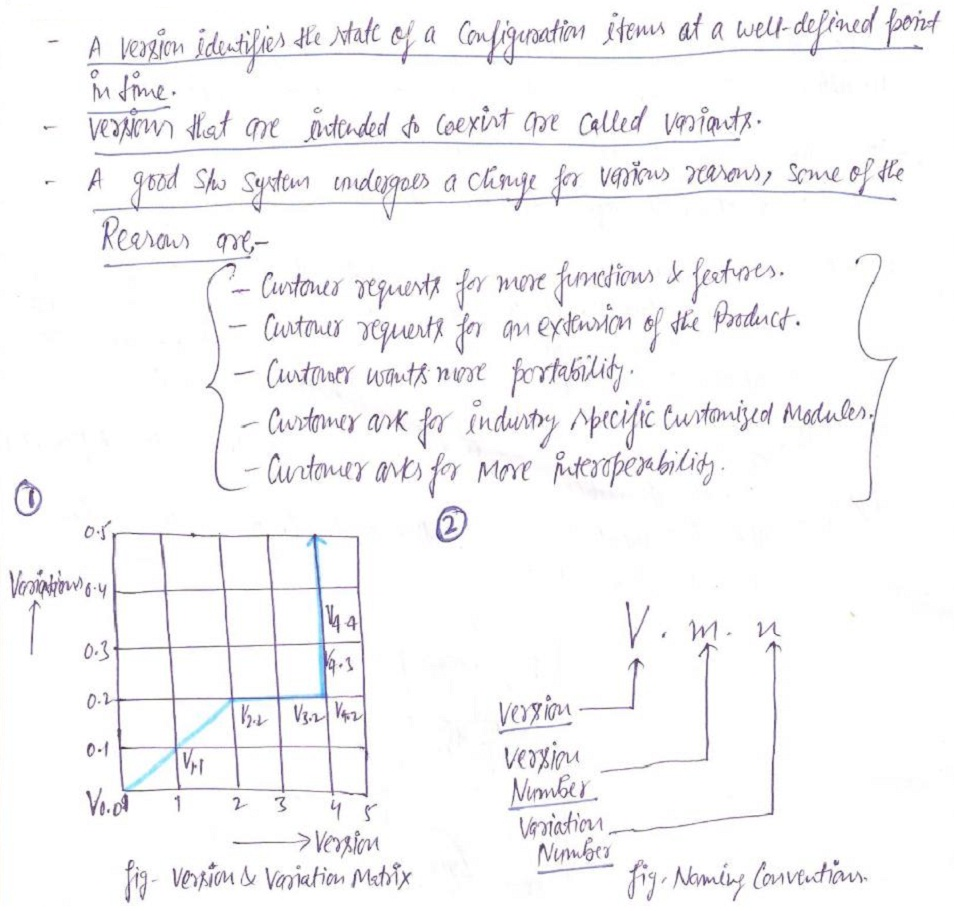 - A version identifies the state of a Configuration items at a well-defined point
in time.
- Versions that are intended to Coexist are called variants.
- A good S/w System undergoes a change for various reasons, Some of the
Reasons are,-
- Customer requests for more functions & features.
- Customer requests for an extension of the Product.
- Customer wants more portability.
- Customer ask for industry specific Customized Modules.
- Customer asks for More interoperability.
①
②
0.5
Variations 0.4
0.3
0.2
0.1
V0.0
V1.1
V2.2
V3.2
V4.2
V4.3
V4.4
1 2 3 4 5
Version
fig- Version & Variation Matrix
V. m. n
Version
Version
Number
Variation
Number
fig. Naming Conventions.